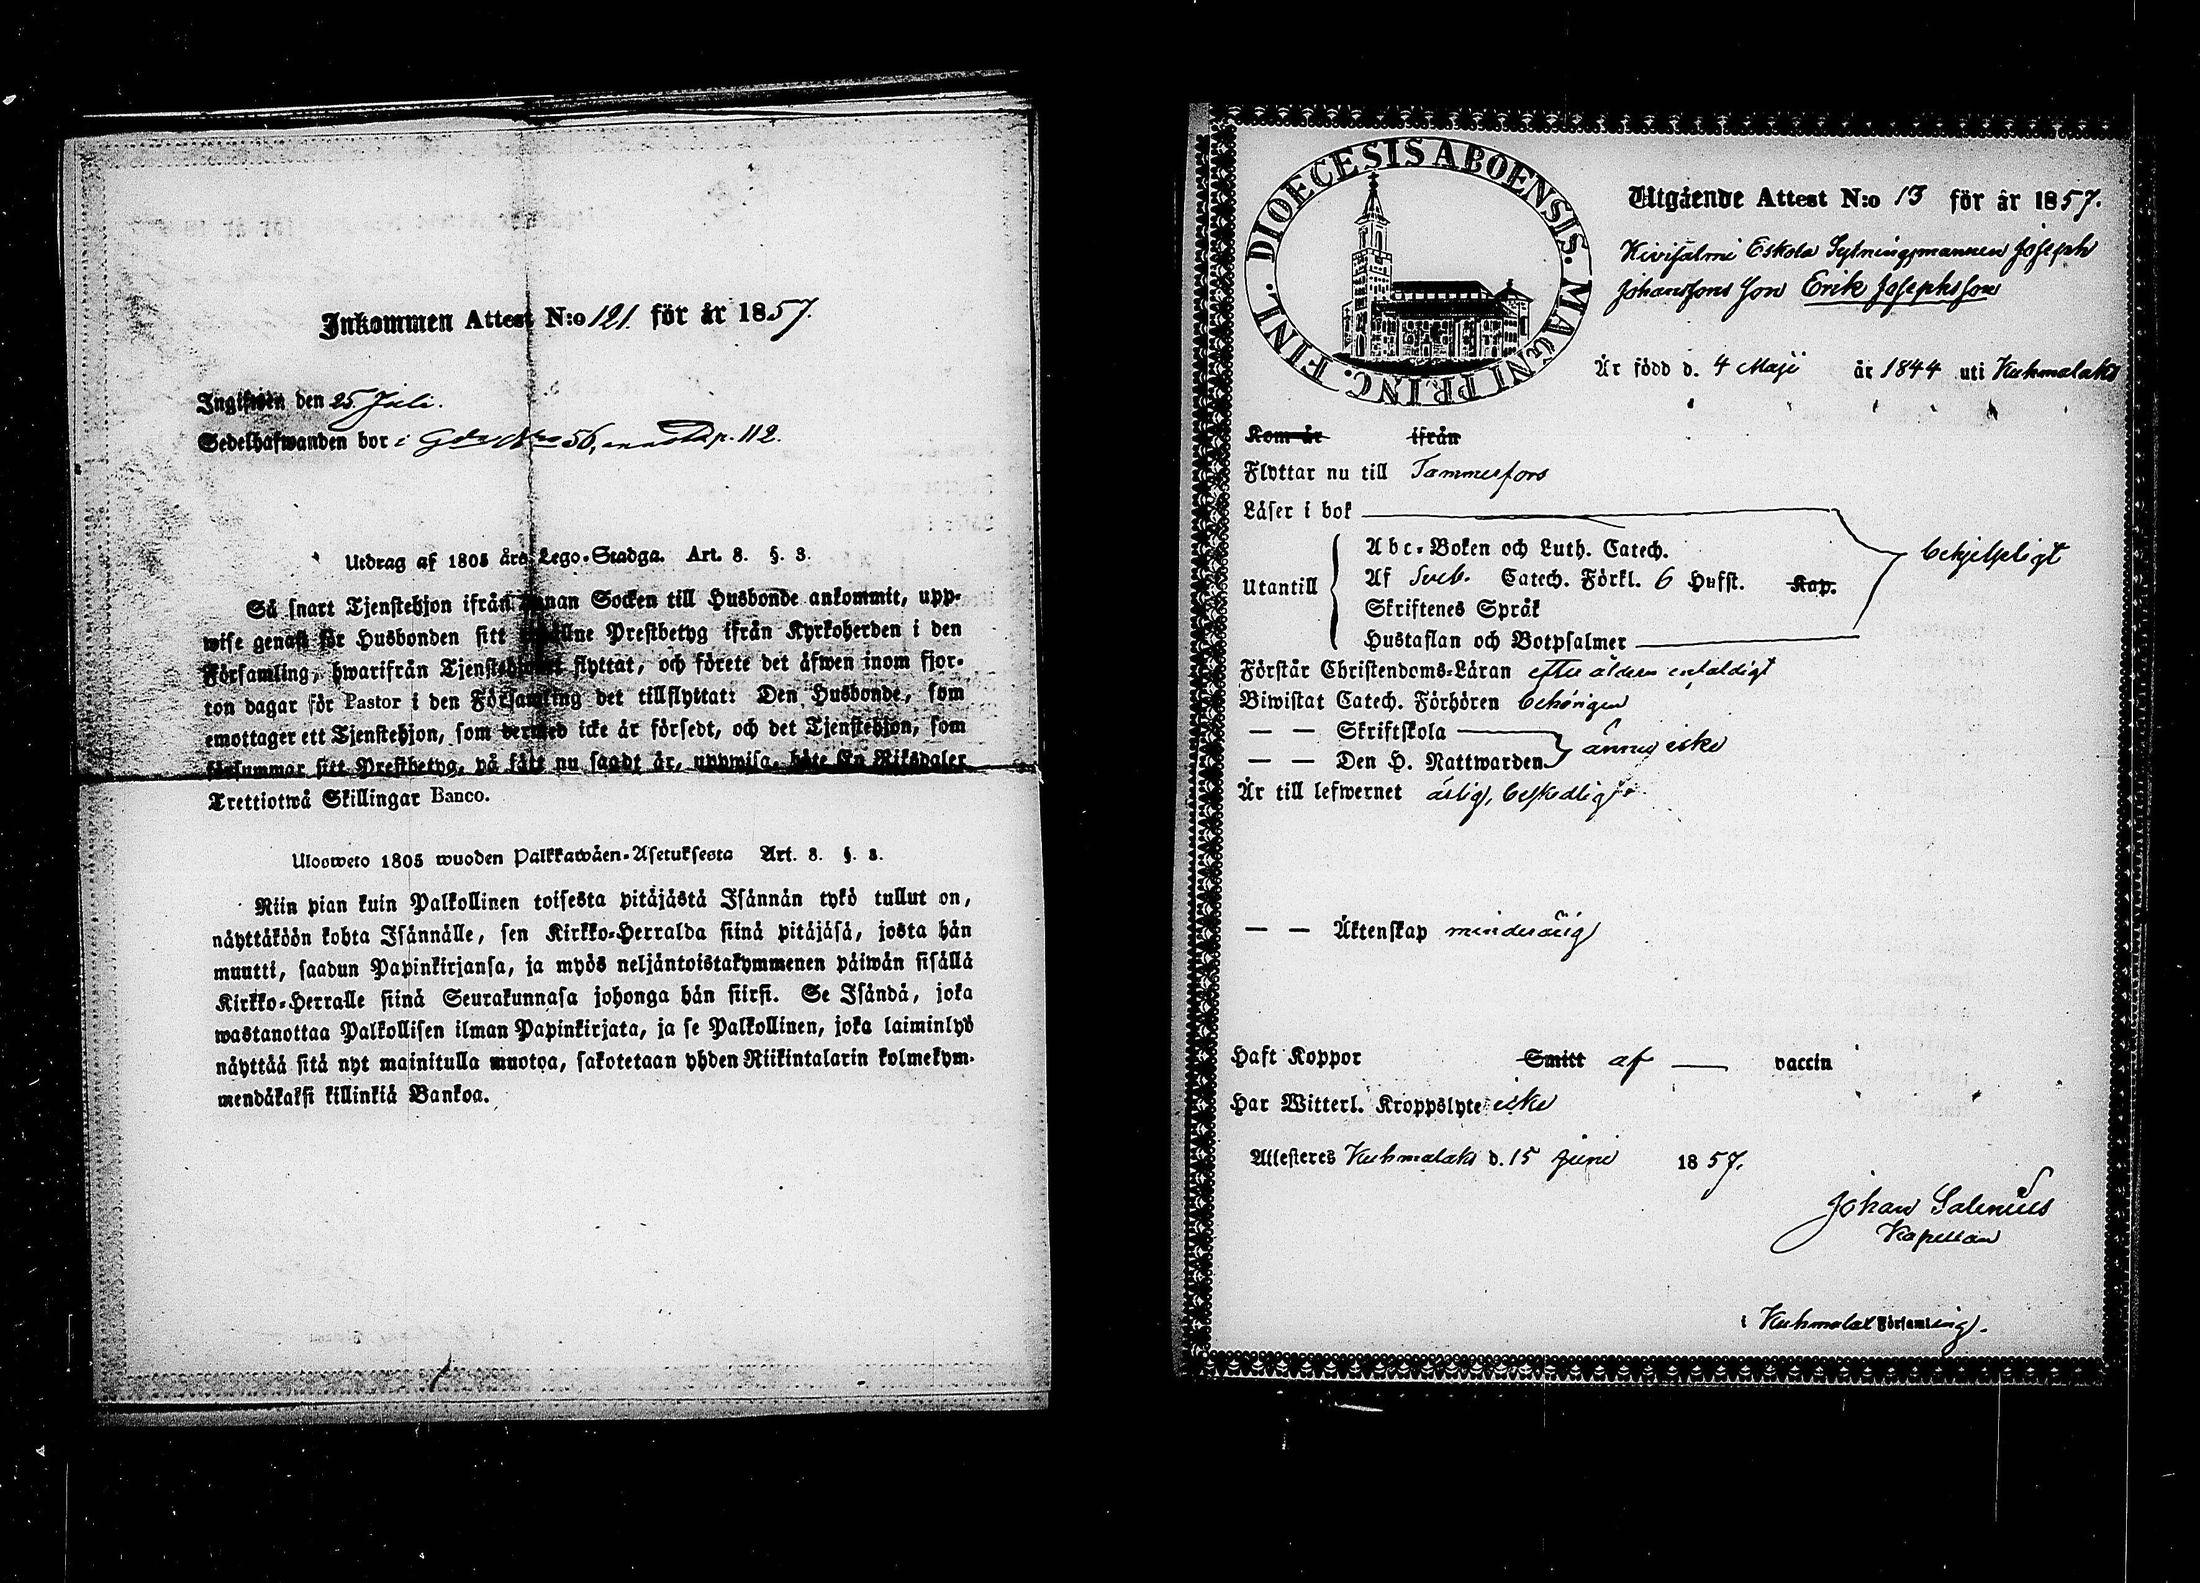 Inkommen Attest N:o 121 för år 1857.
Ingifwen den 25 Juli.
Sedelhafwanden bor i Gården No 56, p. 112.
Utdrag af 1805 års Lego-Stadga. Art. 8. §. 3.
Så snart Tjenstehjon ifrån annan Socken till Husbonde ankommit, upp-
wise genast för Husbonden sitt Prestbetyg ifrån Kyrkoherden i den
Församling, hwarifrån Tjenstehjonet flyttat, och förete det äfwen inom fjor-
ton dagar för Pastor i den Församling det tillflyttat: Den Husbonde, som
emottager ett Tjenstehjon, som dermed icke är försedt, och det Tjenstehjon, som
försummar sitt Prestbetyg, på sätt nu sagdt är, uppwisa, böte En Riksdaler
Trettiotwå Skillingar Banco.
Ulosweto 1805 wuoden Palkkawäen-Asetuksesta Art. 8. §. 3.
Niin pian kuin Palkollinen toisesta pitäjästä Isännän tykö tullut on,
näyttäköön kohta Isännälle, sen Kirkko-Herralda siinä pitäjäsä, josta hän
muutti, saadun Papinkirjansa, ja myös neljäntoistakymmenen päiwän sisällä
Kirkko-Herralle siinä Seurakunnasa johonga hän siirsi. Se Isändä, joka
wastanottaa Palkollisen ilman Papinkirjata, ja se Palkollinen, joka laiminlyö
näyttää sitä nyt mainitulla muotoa, sakotetaan yhden Riikintalarin kolmekym-
mendäkaksi killinkiä Bankoa.
DIOECESIS ABOENSIS. MAGNI PRINC. FINL.
Utgående Attest N:o 13 för år 1857.
Kivisalmi Eskola Sytningsmannen Joseph
Johanssons Son Erik Josephsson
Är född d. 4 Maji år 1844 uti Kuhmalaks
Kom år ifrån
Flyttar nu till Tammerfors
Läser i bok
Utantill
Abc-Boken och Luth. Catech.
Af Sveb. Catech. Förkl. 6 Hufst. Kap.
Skriftenes Språk
Hustaflan och Botpsalmer
behjelpligt
Förstår Christendoms-Läran efter åldern enfaldigt
Biwistat Catech. Förhören behörigen
— — Skriftskola
— — Den H. Nattwarden
ännu icke
Är till lefwernet ärlig, beskedlig
— — Äktenskap minderårig
Haft Koppor Smitt af — vaccin
Har Witterl. Kroppslyte icke
Attesteres Kuhmalaks d. 15 Juni 1857.
Johan Salenius
Kapellan
i Kuhmalax Församling.